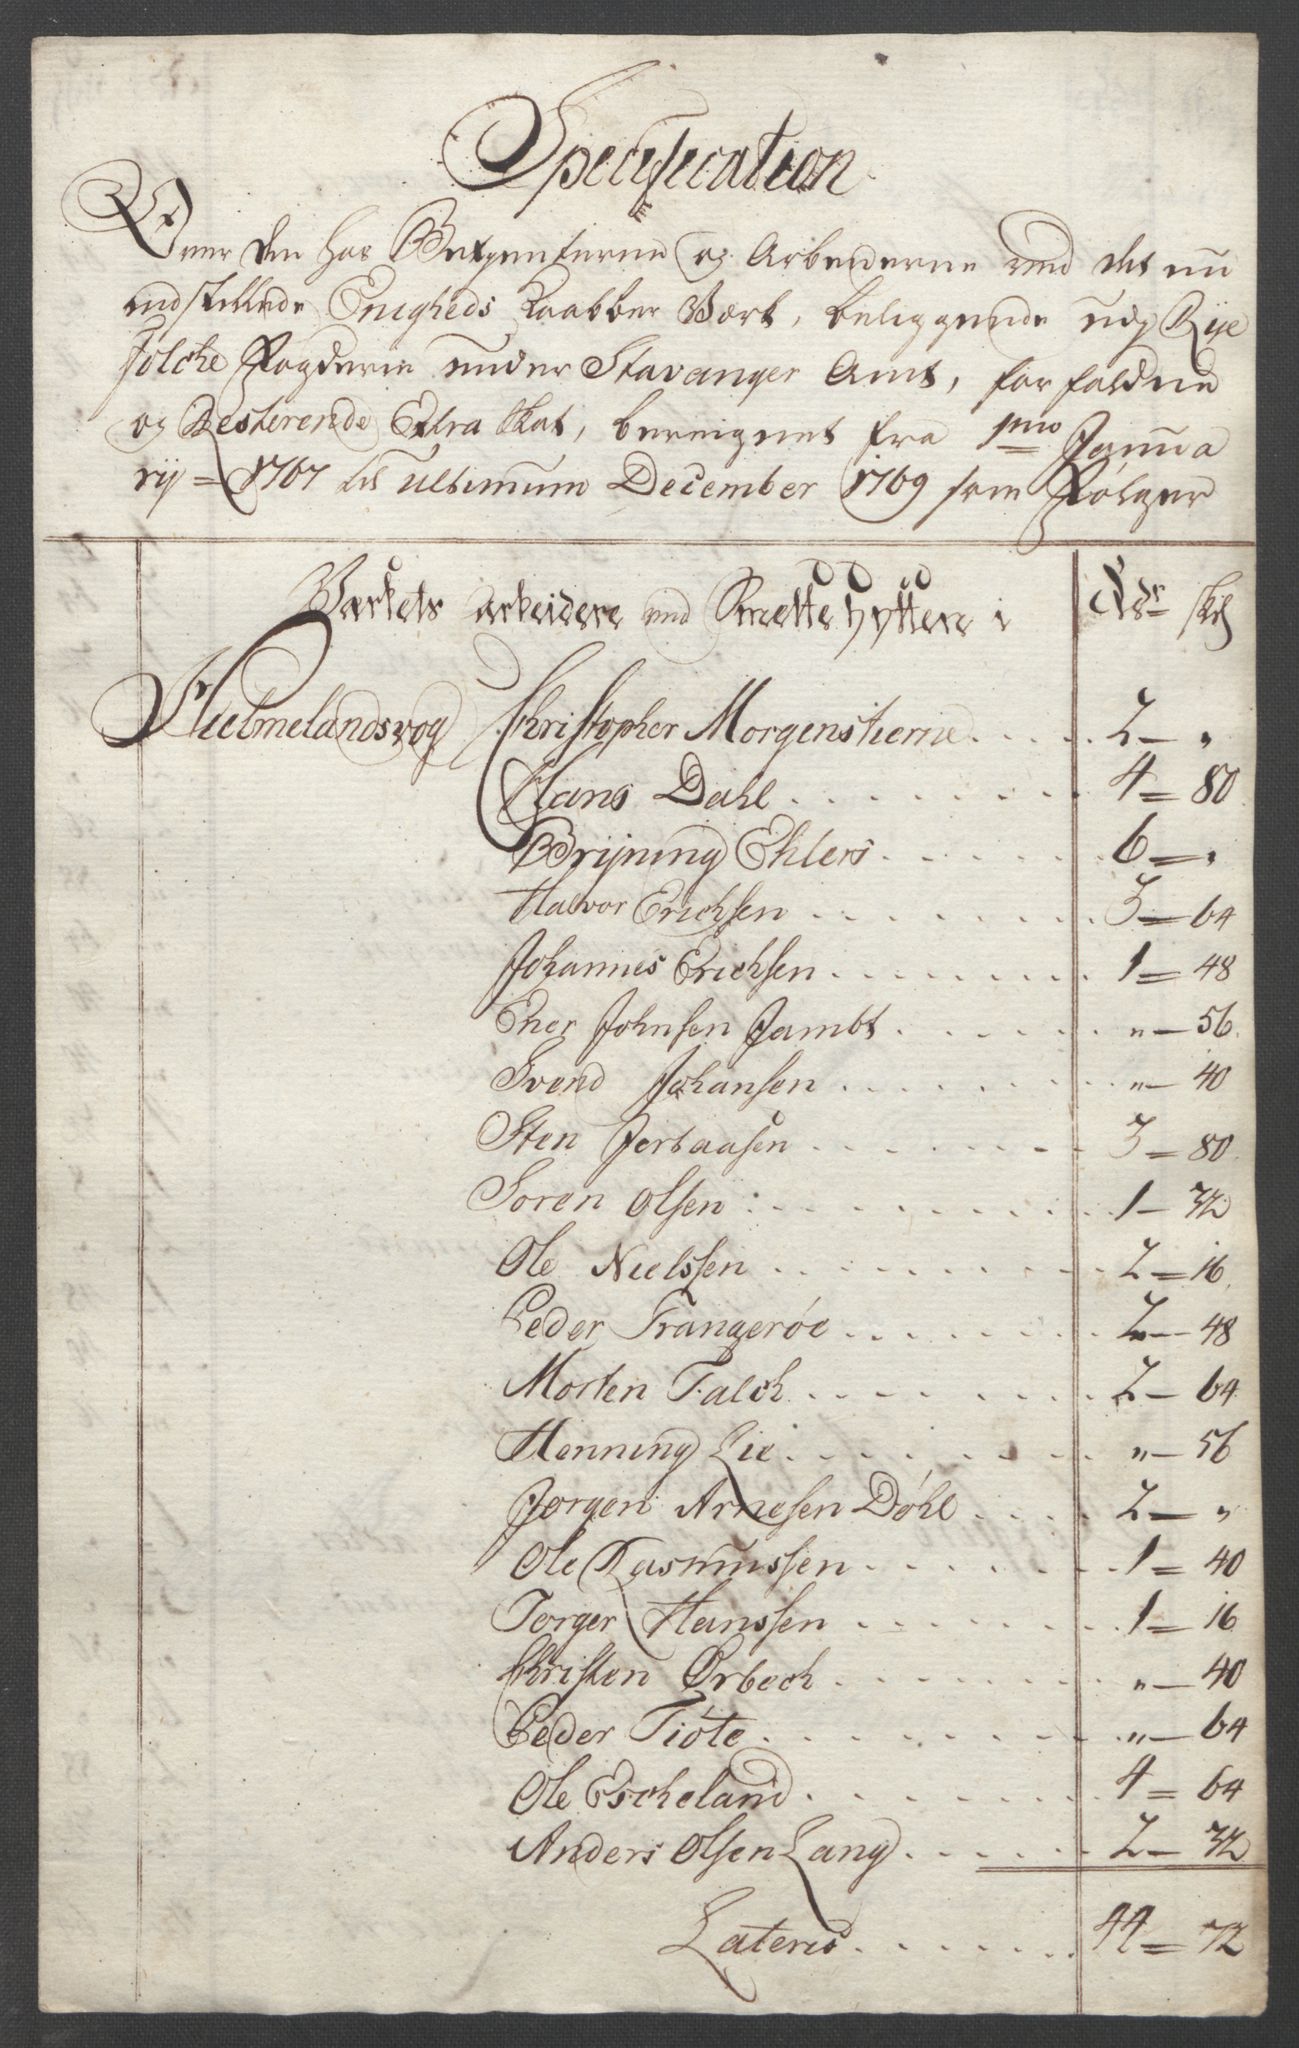 Specification
Over den hos Betienterne og Arbeiderne ved det nu
indstillede Enigheds Kaabber Værk, beliggende udj Rye
folche Fogderie under Stavanger Amt, forfaldne
og Resterende Extra Skat, bereignet fra 1mo Janua
rij = 1767 til ultimum December 1769 som Følger
Værkets arbeidere ved Smelte hytten i Rdr skl
Hielmelandsvog Christopher Morgenstierne . . . . . 2 — "
Hans Dahl . . . . . . . . 4 = 80
Brijning Ehlers . . . . . . 6 = "
Halvor Erichsen . . . . . . . . 3 — 64
Johannes Erichsen . . . . . . . . 1 = 48
Ener Johnsen Jambt . . . . . . " — 56
Svend Johansen . . . . . . . . " — 40
Sten Joraasen . . . . . . . . 3 = 80
Soren Olsen . . . . . . . . . 1 — 32
Ole Nielssen . . . . . . . . . 2 = 16
Peder Trangerøe . . . . . . . 2 — 48
Morten Falch . . . . . . . . 2 — 64
Henning Lie . . . . . . . . " — 56
Jørgen Arnesen Døhl . . . . 2 — "
Ole Rasmussen . . . . . . . 1 = 40
Torger Hanssen . . . . . . . 1 — 16
Christen Ørbech . . . . . . . " — 40
Peder Tiøte . . . . . . . . " — 64
Ole Escheland . . . . . . . . 4 = 64
Anders Olsen Lang . . . . . . 2 — 32
Lateris . . . . . . 44 = 72